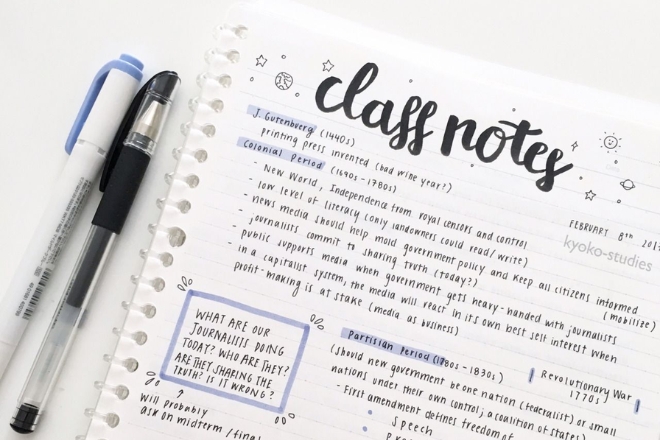 class notes
FEBRUARY 8TH 201
kyoko-studies
J. Gutenberg (1440s)
printing press invented (bad wine year?)
Colonial Period (1690s-1780s)
- New World, Independence from royal censors and control
- low level of literacy (only landowners could read/write)
- news media should help mold government policy and keep all citizens informed
(mobilize)
- journalists commit to sharing truth (today?)
- public supports media when government gets heavy-handed with journalists
- in a capitalist system, the media will react in its own best self interest when
profit-making is at stake (media as business)
WHAT ARE OUR
JOURNALISTS DOING
TODAY? WHO ARE THEY?
ARE THEY SHARING THE
TRUTH? IS IT WRONG?
Will probably
ask on midterm/final
Partisian Period (1780s-1830s)
Revolutionary War
1770s
(should new government be one nation (federalist) or small
nations under their own control; a coalition of states)
- First amendment defines freedom of
Speech